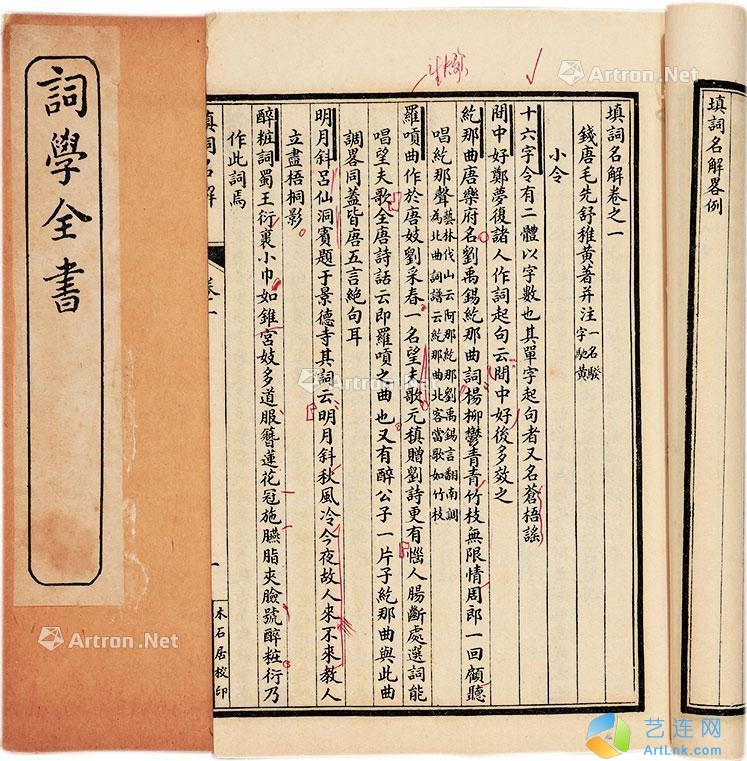 詞學全書
填詞名解畧例
填詞名解卷之一
錢唐毛先舒稚黃著并注一名騤字馳黃
小令
十六字令有二體以字數也其單字起句者又名蒼梧謡
閒中好鄭夢復諸人作詞起句云閒中好後多效之
紇那曲唐樂府名劉禹錫紇那曲詞楊柳鬱青青竹枝無限情周郎一回顧聽
唱紇那聲藝林伐山云阿那紇那劉禹錫言翻南調為北曲詞譜云紇那曲北客當歌如竹枝
羅嗊曲作於唐妓劉采春一名望夫歌元稹贈劉詩更有惱人腸斷處選詞能
唱望夫歌全唐詩話云即羅嗊之曲也又有醉公子一片子紇那曲與此曲
調畧同蓋皆唐五言絕句耳
明月斜呂仙洞賓題于景德寺其詞云明月斜秋風冷今夜故人來不來教人
立盡梧桐影
醉粧詞蜀王衍裹小巾如錐宮妓多道服簪蓮花冠施臙脂夾臉號醉粧衍乃
作此詞焉
填詞名解
卷一
一
木石居校印
Artron.Net
Artron.Net
Artron.Net
Artron.Net
艺连网
ArtLnk.com